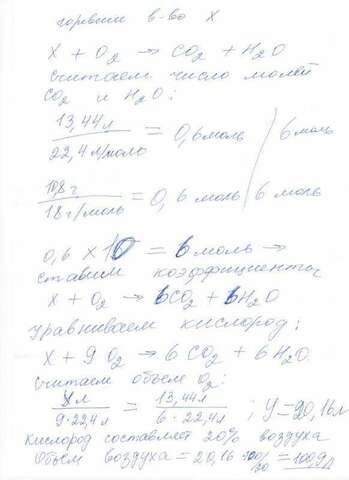 горевши в-во X
X + O₂ → CO₂ + H₂O
Считаем число молей
CO₂ и H₂O:
13,44л / 22,4 л/моль = 0,6 моль / 6 моль
10,8 г / 18 г/моль = 0,6 моль / 6 моль
0,6 × 10 = 6 моль →
ставим коэффициенты
X + O₂ → 6CO₂ + 6H₂O
уравниваем кислород:
X + 9O₂ → 6CO₂ + 6H₂O.
считаем объем O₂:
Yл / 9·22,4л = 13,44л / 6·22,4л ; Y = 20,16л
Кислород составляет 20% воздуха
Объем воздуха = 20,16·100/20 = 100,8л